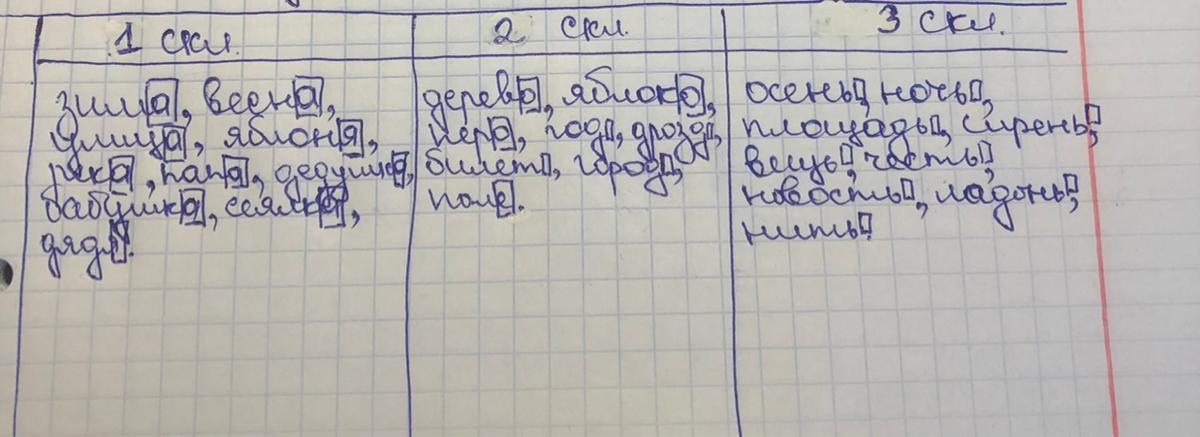 1 скл.
2 скл.
3 скл.
зима, весна,
улица, яблоня,
река, папа, дедушка,
бабушка, сеялка,
дядя.
дерево, яблоко,
перо, год, дрозд,
билет, город,
поле.
осень, ночь,
площадь, сирень,
вещь, часть,
новость, ладонь,
нить.